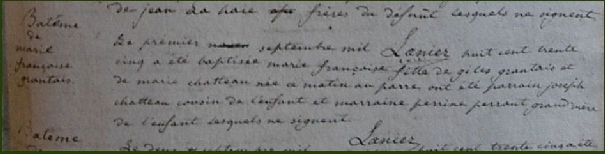 de jean La haie frères du défunt lesquels ne signent
Batême
de
marie
françoise
grantais.
Le premier septembre mil Lancer huit cent trente
cinq a été baptisée marie françoise fille de giles grantais et
de marie chatteau née ce matin au parre, ont été parrain joseph
chatteau cousin de l'enfant et marraine perrine perrant grand mère
de l'enfant lesquels ne signent
Batême
Le deux septembre mil Lancer huit cent trente cinq a été